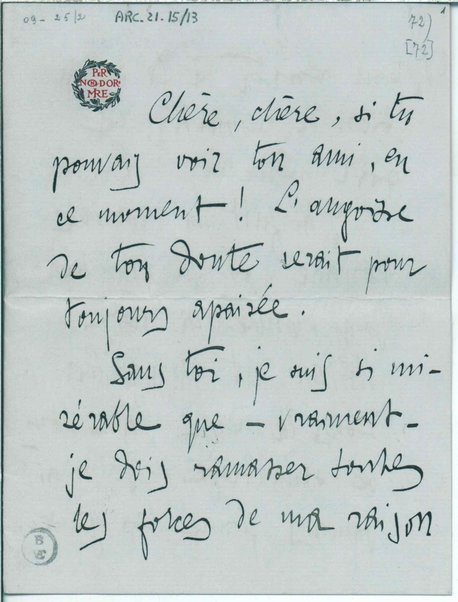 09-25/2 ARC. 21. 15/13 72) 1
[72]
PER
NON DOR
MIRE
Chère, chère, si tu
pouvais voir ton ami, en
ce moment ! L'angoisse
de ton doute serait pour
toujours apaisée.
Sans toi, je suis si mi-
sérable que – vraiment –
je dois ramasser toutes
les forces de ma raison